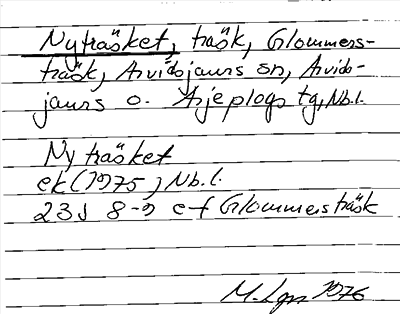 Nyträsket, träsk, Glommers-
träsk, Arvidsjaurs sn, Arvids-
jaurs o. Arjeplogs tg, Nb.l.
Nyträsket
ek (1975), Nb.l.
23J 8-9 e-f Glommersträsk
M. Lgn 1976